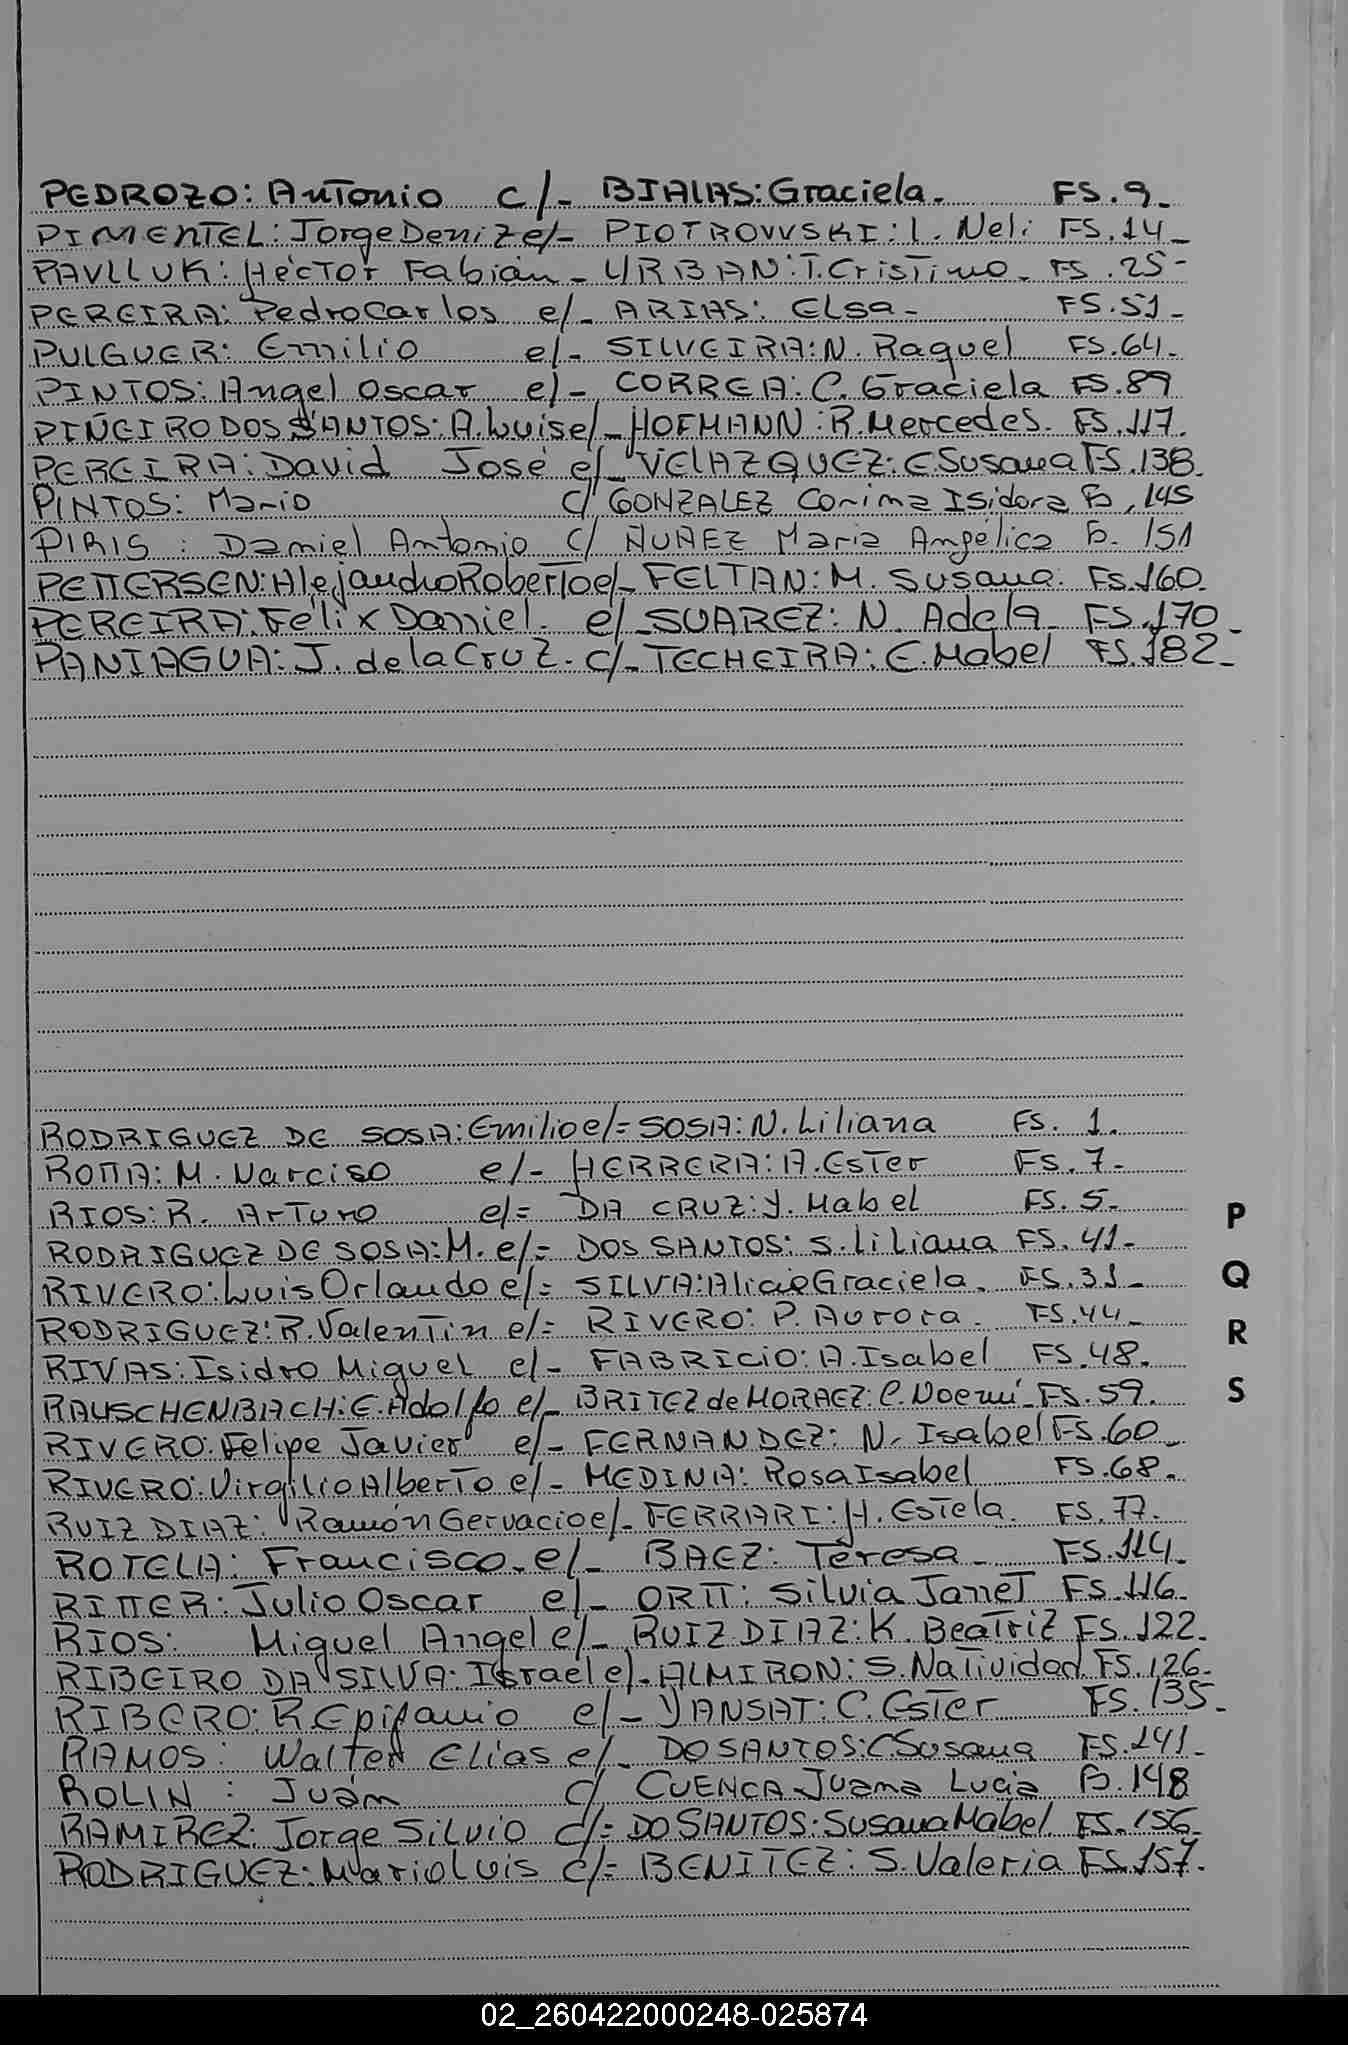 PEDROZO: Antonio c/- BIALAS: Graciela. FS. 9_
PIMENTEL: Jorge Deniz e/- PIOTROWSKI: I. Neli FS. 14_
PAVLLUK: Héctor Fabián - URBAN: T. Cristina - FS. 25-
PEREIRA: Pedro Carlos e/- ARIAS: Elsa - FS. 51_
PULGUER: Emilio e/- SILVEIRA: N. Raquel FS. 64.
PINTOS: Angel Oscar e/- CORREA: C. Graciela FS. 89
PIÑEIRO DOS SANTOS: A. Luis e/- HOFMANN: R. Mercedes. FS. 117.
PEREIRA: David José e/ VELAZQUEZ: E Susana FS. 138.
PINTOS: Mario c/ GONZALEZ Corina Isidora Fs. 145
PIRIS : Daniel Antonio c/ NUÑEZ Maria Angélica Fs. 151
PETTERSEN: Alejandro Roberto e/- FELTAN: M. Susana. Fs. 160.
PEREIRA: Félix Daniel. e/- SUAREZ: N. Adela FS. 170_
PANIAGUA: J. de la Cruz. c/- TECHEIRA: E. Mabel FS. 182_
RODRIGUEZ DE SOSA: Emilio e/= SOSA: N. Liliana FS. 1.
ROTTA: M. Narciso e/- HERRERA: A. Ester FS. 7-
RIOS: R. Arturo e/= DA CRUZ: Y. Mabel FS. 5-
RODRIGUEZ DE SOSA: M. e/= DOS SANTOS: S. Liliana FS. 41-
RIVERO: Luis Orlando e/= SILVA: Alicia Graciela. FS. 31_
RODRIGUEZ: R. Valentin e/= RIVERO: P. Aurora. FS. 44_
RIVAS: Isidro Miguel e/- FABRICIO: A. Isabel FS. 48.
RAUSCHENBACH: E. Adolfo e/- BRITEZ de MORAEZ: C. Noemí - FS. 59.
RIVERO: Felipe Javier e/- FERNANDEZ: N. Isabel FS. 60_
RIVERO: Virgilio Alberto e/- MEDINA: Rosa Isabel FS. 68.
RUIZ DIAZ: Ramón Gervacio e/- FERRARI: H. Estela. FS. 77.
ROTELA: Francisco. e/- BAEZ: Teresa - FS. 114_
RITTER: Julio Oscar e/- ORTT: Silvia Janet FS. 116_
RIOS: Miguel Angel e/- RUIZ DIAZ: K. Beatriz FS. 122.
RIBEIRO DA SILVA: Israel e/- ALMIRON: S. Natividad FS. 126_
RIBERO: R Epifanio e/- YANSAT: C. Ester FS. 135_
RAMOS: Walter Elias e/- DO SANTOS: C. Susana FS. 141_
ROLIN : Juan c/ CUENCA Juana Lucia Fs. 148
RAMIREZ: Jorge Silvio c/= DO SANTOS: Susana Mabel. FS. 156_
RODRIGUEZ: Mario Luis c/= BENITEZ: S. Valeria FS. 157.
P
Q
R
S
02_260422000248-025874